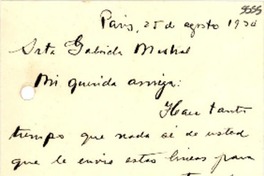 5555
Paris, 25 de agosto 1934
Srta Gabriela Mistral
Mi querida amiga:
Hace tanto
tiempo que nada sé de usted
que le envío estas líneas para